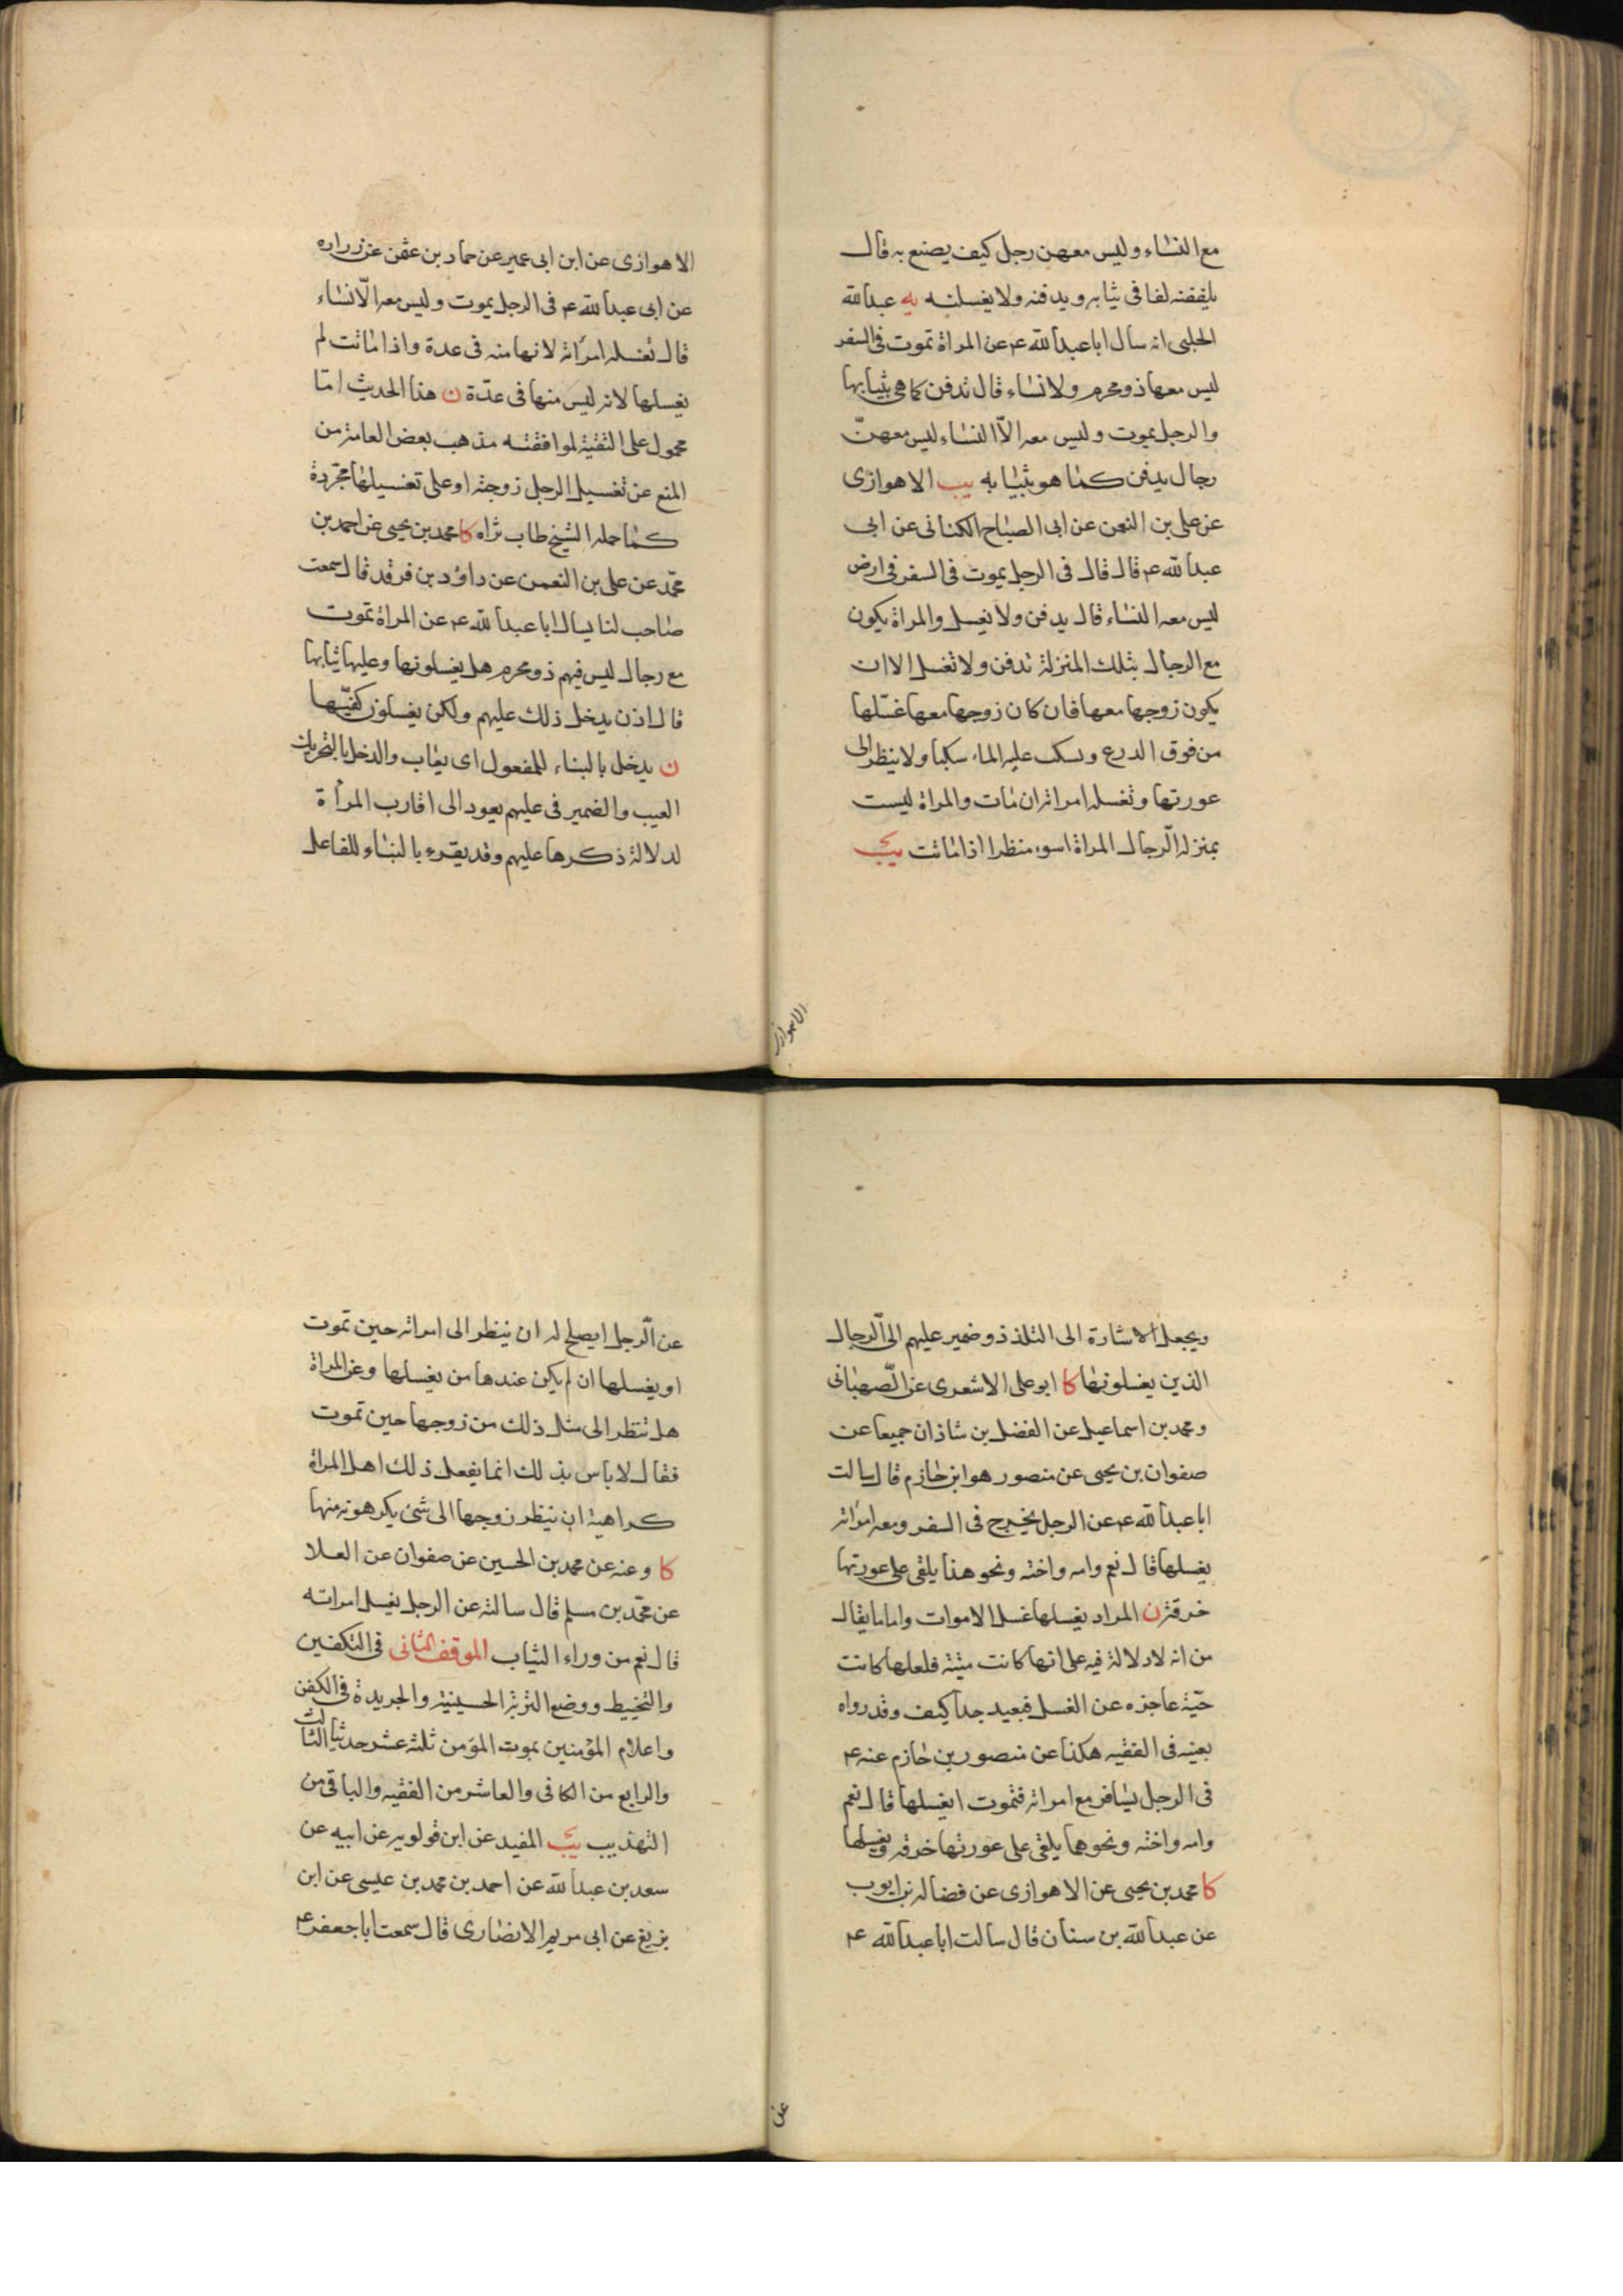 مع النساء وليس معهن رجل كيف يصنع به قال
يلففنه لفا في ثيابه ويدفنه ولا يغسلنه يه عبدالله
الحلبي انه سأل اباعبدالله ع عن المراة تموت في السفر
ليس معها ذو محرم ولا نساء قال تدفن كما هي بثيابها
والرجل يموت وليس معه الّا النساء ليس معهنّ
رجال يدفن كما هو بثيابه يب الاهوازى
عن على بن النعمن عن ابى الصباح الكنانى عن ابى
عبدالله ع قال قال فى الرجل يموت فى السفر فى ارض
ليس معه النساء قال يدفن ولا يغسل والمراة يكون
مع الرجال بتلك المنزلة تدفن ولا تغسل الا ان
يكون زوجها معها فان كان زوجها معها غسّلها
من فوق الدرع ويسكب عليه الماء سكبا ولا ينظر الى
عورتها وتغسله امراته ان مات والمراة ليست
بمنزلة الرّجال المراة اسوء منظرا اذا ماتت يب
الاهوازى
الاهوازى عن ابن ابى عمير عن حماد بن عثمن عن زراره
عن ابى عبدالله ع فى الرجل يموت وليس معه الّا نساء
قال تغسله امراته لانها منه فى عدة واذا ماتت لم
يغسلها لانه ليس منها فى عدّة ن هذا الحديث امّا
محمول على التقية لموافقته مذهب بعض العامة من
المنع عن تغسيل الرجل زوجته او على تغسيلها مجرّدة
كما حمله الشيخ طاب ثراه كا محمد بن يحيى عن احمد بن
محمّد عن على بن النعمن عن داؤد بن فرقد قال سمعت
صاحب لنا يسال اباعبدالله ع عن المراة تموت
مع رجال ليس فيهم ذو محرم هل يغسلونها وعليها ثيابها
قال اذن يدخل ذلك عليهم ولكن يغسلون كفيّها
ن يدخل بالبناء للمفعول اى يعاب والدخل بالتحريك
العيب والضمير فى عليهم يعود الى اقارب المرأة
لدلالة ذكرها عليهم وقد يقرء بالبناء للفاعل
ويجعل الاشارة الى التلذذ وضمير عليهم الى الّرجال
الذين يغسلونها كا ابو على الاشعرى عن الصّهبانى
ومحمد بن اسماعيل عن الفضل بن شاذان جميعا عن
صفوان بن يحيى عن منصور هو ابن حازم قال سالت
اباعبدالله ع عن الرجل يخرج فى السفر ومعه امراته
يغسلها قال نعم وامه واخته ونحو هذا يلقى على عورتها
خرقة ن المراد يغسلها غسل الاموات واما ما يقال
من انه لا دلالة فيه على انها كانت ميتة فلعلها كانت
حيّة عاجزه عن الغسل فبعيد جدا كيف وقد رواه
بعينه فى الفقيه هكذا عن منصور بن حازم عنه ع
فى الرجل يسافر مع امراته فتموت ايغسلها قال نعم
وامه واخته ونحوهما يلقى على عورتها خرقه ويغسلها
كا محمد بن يحيى عن الاهوازى عن فضاله بن ايوب
عن عبدالله بن سنان قال سالت اباعبدالله ع
عن
عن الّرجل ايصلح له ان ينظر الى امراته حين تموت
او يغسلها ان لم يكن عندها من يغسلها وعن المراة
هل تنظر الى مثل ذلك من زوجها حين تموت
فقال لا باس بذلك انما يفعل ذلك اهل المراة
كراهية ان ينظر زوجها الى شئ يكرهونه منها
كا وعنه عن محمد بن الحسين عن صفوان عن العلا
عن محمّد بن مسلم قال سالته عن الرجل يغسل امراته
قال نعم من وراء الثياب الموقف الثانى فى التكفين
والتحنيط ووضع التربة الحسينية والجريدة فى الكفن
واعلام المؤمنين بموت المؤمن ثلثة عشر حديثا الثالث
والرابع من الكافى والعاشر من الفقيه والباقى من
التهذيب يب المفيد عن ابن قولويه عن ابيه عن
سعد بن عبدالله عن احمد بن محمد بن عيسى عن ابن
بزيع عن ابى مريم الانصارى قال سمعت اباجعفر ع